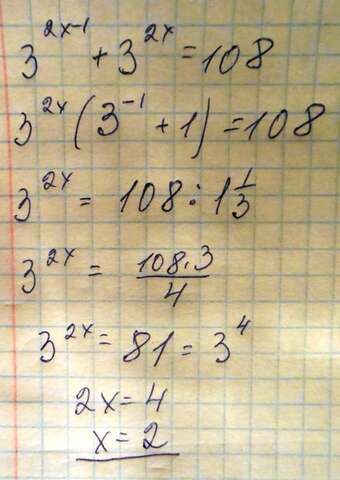 3^{2x-1} + 3^{2x} = 108
3^{2x} (3^{-1} + 1) = 108
3^{2x} = 108 : 1 1/3
3^{2x} = 108·3/4
3^{2x} = 81 = 3^4
2x = 4
x = 2